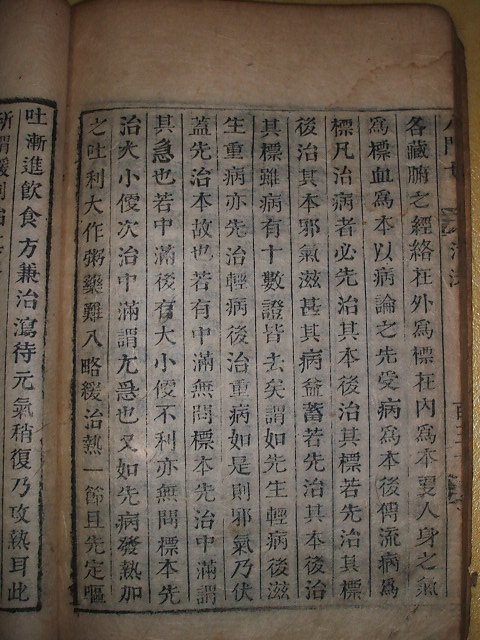 各藏腑之經絡在外為標在內為本更人身之氣
為標血為本以病論之先受病為本後傳流病為
標凡治病者必先治其本後治其標若先治其標
後治其本邪氣滋甚其病益蓄若先治其本後治
其標雖病有十數證皆去矣謂如先生輕病後滋
生重病亦先治輕病後治重病如是則邪氣乃伏
蓋先治本故也若有中滿無問標本先治中滿謂
其急也若中滿後有大小便不利亦無問標本先
治大小便次治中滿謂尤急也又如先病發熱加
之吐利大作粥藥難入略緩治熱一節且先定嘔
吐漸進飲食方兼治瀉待元氣稍復乃攻熱耳此